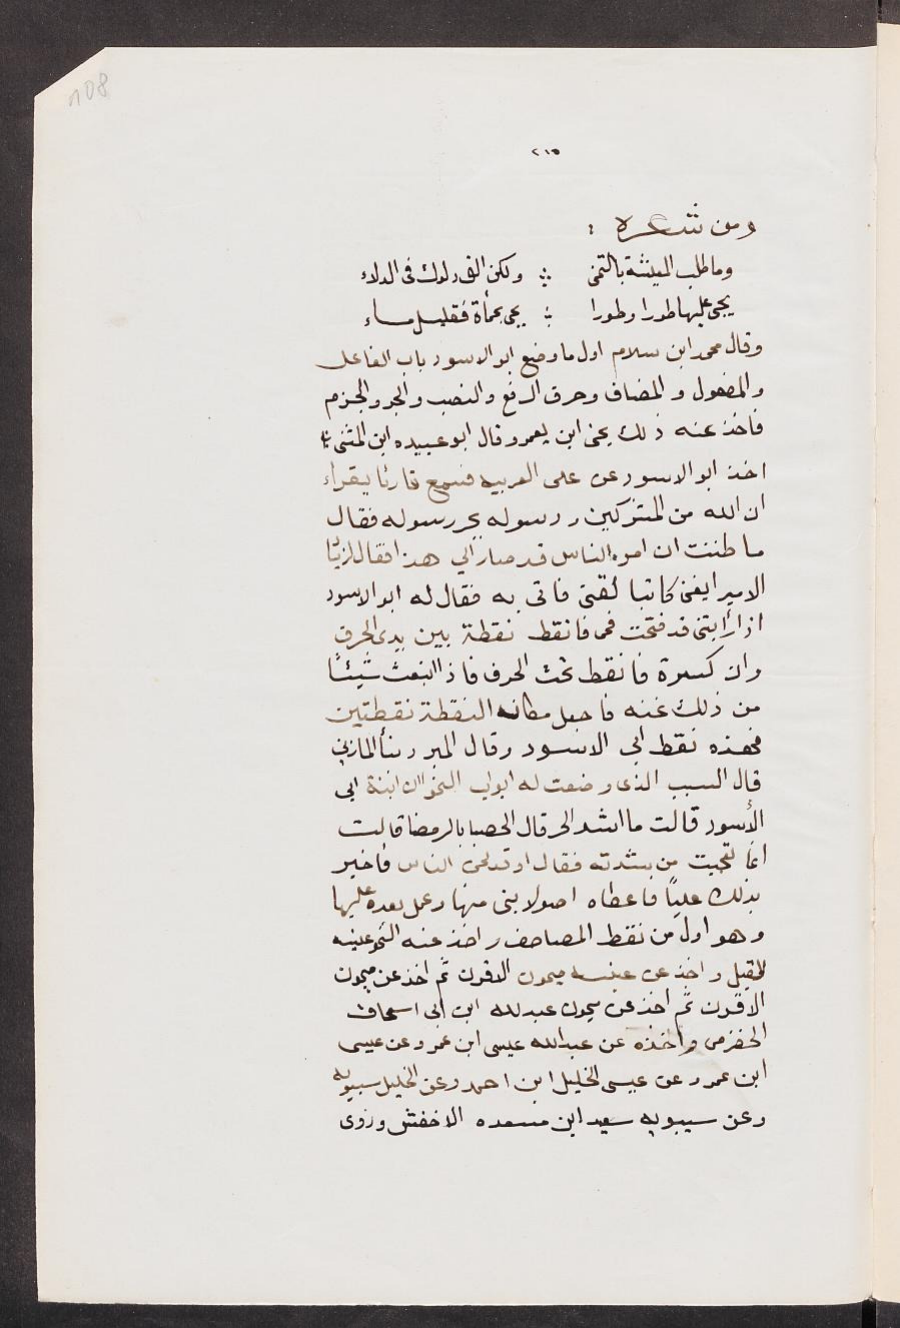 108
٢١٥
ومن شعره :
وما طلب المعيشة بالتمنى ؞ ولكن الق دلوك فى الدلاء
يجى عليها طورا وطورا ؞ يجى بحمأة فقليل ماء
وقال محمد ابن سلام اول ما وضع ابو الاسود باب الفاعل
والمفعول والمضاف وحرف الرفع والنصب والجر والجزم
فاخذ عنه ذلك يحى ابن يعمر وقال ابو عبيده ابن المثنى
اخذ ابو الاسود عن على العربيه فسمع قارئا يقراء
ان الله من المشركين ورسوله بجر رسوله فقال
ما ظننت ان امر الناس قد صار الي هذا فقال لزياد
الامير ابغنى كاتبا لقنى فاتى به فقال له ابو الاسود
اذا رأيتنى قد فتحت فمى فانقط نقطة بين يدى الحرف
وان كسرة فانقط تحت الحرف فاذ اتبعت شيئا
من ذلك غنه فاجعل مكانه النقطة نقطتين
فهذه نقط ابى الاسود وقال المبرد ثنا المازنى
قال السبب الذى وضعت له ابواب النحو ان ابنة ابى
الأسود قالت ما اشد الحر قال الحصبا بالرمضا قالت
انما تعجبت من شدته فقال اوقد لحن الناس فاخبر
بذلك عليًا فاعطاه اصولا بنى منها وعمل بعده عليها
وهو اول من نقط المصاحف واخذ عنه النحو عنبسه
الفيل واخذ عن عنبسه ميمون الاقرن ثم اخذ عن ميمون
الاقرن ثم اخذ عن ميمون عبدلله ابن ابى اسحاق
الحضرمى وأخذه عن عبدالله عيسى ابن عمر وعن عيسى
ابن عمر وعن عيسى الخليل ابن احمد وعن الخليل سيبويه
وعن سيبويه سعيد ابن مسعده الاخفش وروى